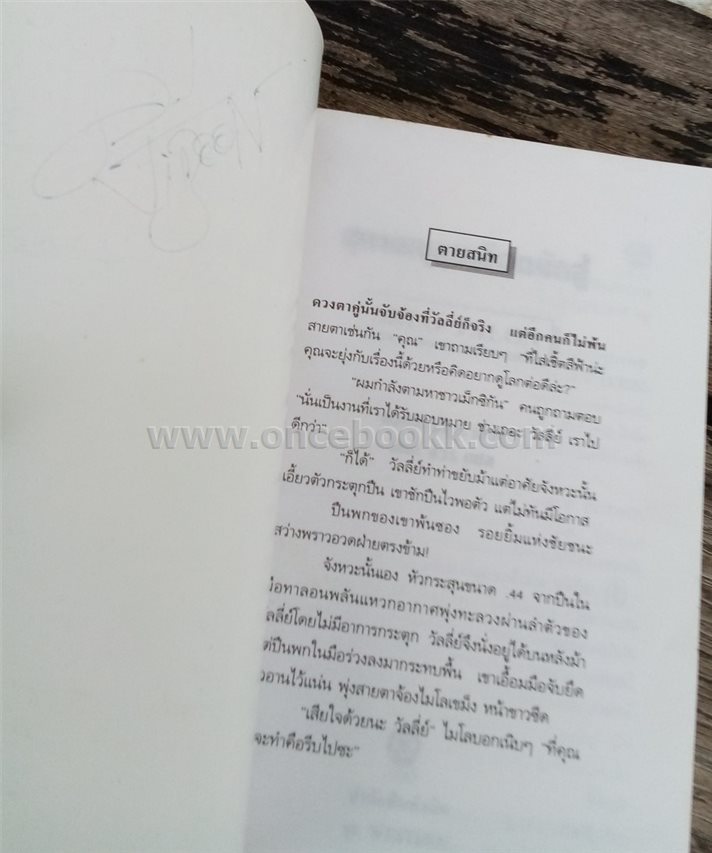 ตายสนิท
ดวงตาคู่นั้นจับจ้องที่วัลลี่ย์ก็จริง แต่อีกคนก็ไม่พ้น
สายตาเช่นกัน "คุณ" เขาถามเรียบๆ "ที่ใส่เชิ้ตสีฟ้าน่ะ
คุณจะยุ่งกับเรื่องนี้ด้วยหรือคิดอยากดูโลกต่อดีล่ะ?"
"ผมกำลังตามหาชาวเม็กซิกัน" คนถูกถามตอบ
"นั่นเป็นงานที่เราได้รับมอบหมาย ช่างเถอะ วัลลี่ย์ เราไป
ดีกว่า"
www.oncebookk.com
"ก็ได้" วัลลี่ย์ทำท่าขยับม้าแต่อาศัยจังหวะนั้น
เอี้ยวตัวกระตุกปืน เขาชักปืนไวพอตัว แต่ไม่ทันมีโอกาส
ปืนพกของเขาพ้นซอง รอยยิ้มแห่งชัยชนะ
สว่างพราวอวดฝ่ายตรงข้าม!
จังหวะนั้นเอง หัวกระสุนขนาด .44 จากปืนใน
มือทาลอนพลันแหวกอากาศพุ่งทะลวงผ่านลำตัวของ
วัลลี่ย์โดยไม่มีอาการกระตุก วัลลี่ย์จึงนั่งอยู่ได้บนหลังม้า
แต่ปืนพกในมือร่วงลงมากระทบพื้น เขาเอื้อมมือจับยึด
อานไว้แน่น พุ่งสายตาจ้องไมโลเขม็ง หน้าขาวซีด
"เสียใจด้วยนะ วัลลี่ย์" ไมโลบอกเนิบๆ "ที่คุณ
จะทำคือรีบไปซะ"